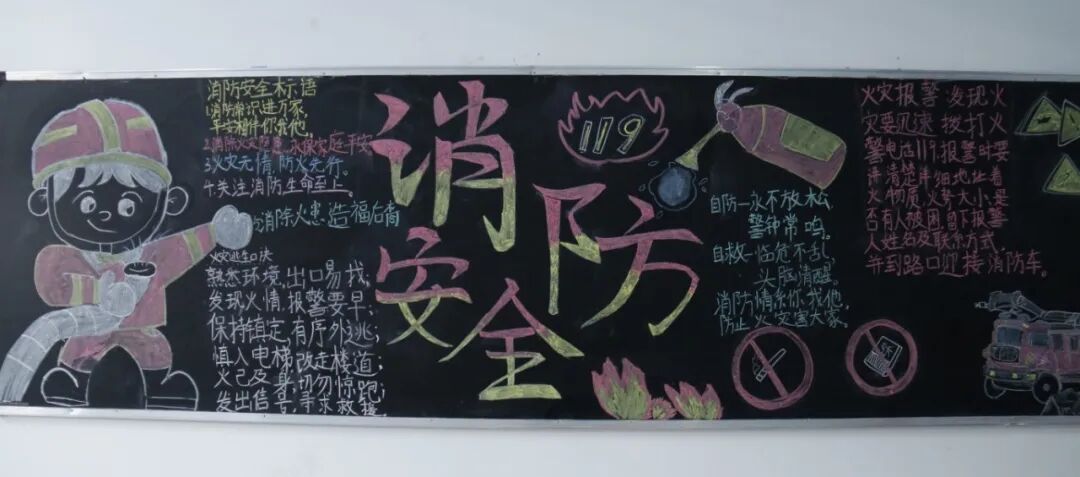 消防安全标语
1消防常识进万家,
平安相伴你我他,
2消除火灾隐患,永保家庭平安
3火灾无情,防火先行。
4关注消防生命至上。
5消除火患造福后裔
火灾逃生口决
熟悉环境,出口易找;
发现火情,报警要早;
保持镇定,有序外逃;
慎入电梯,改走楼道;
火已及身,切勿惊跑;
发出信号,寻求救援
消防
安全
119
自防一永不放松,
警钟常鸣。
自救一临危不乱,
头脑清醒。
消防情系你、我他,
防止火灾害大家。
火灾报警发现火
灾要迅速拨打火
警电话119报警时要
讲清楚详细地址着
火物质,火势大小是
否有人被困留下报警
人姓名及联系方式,
并到路口迎接消防车。